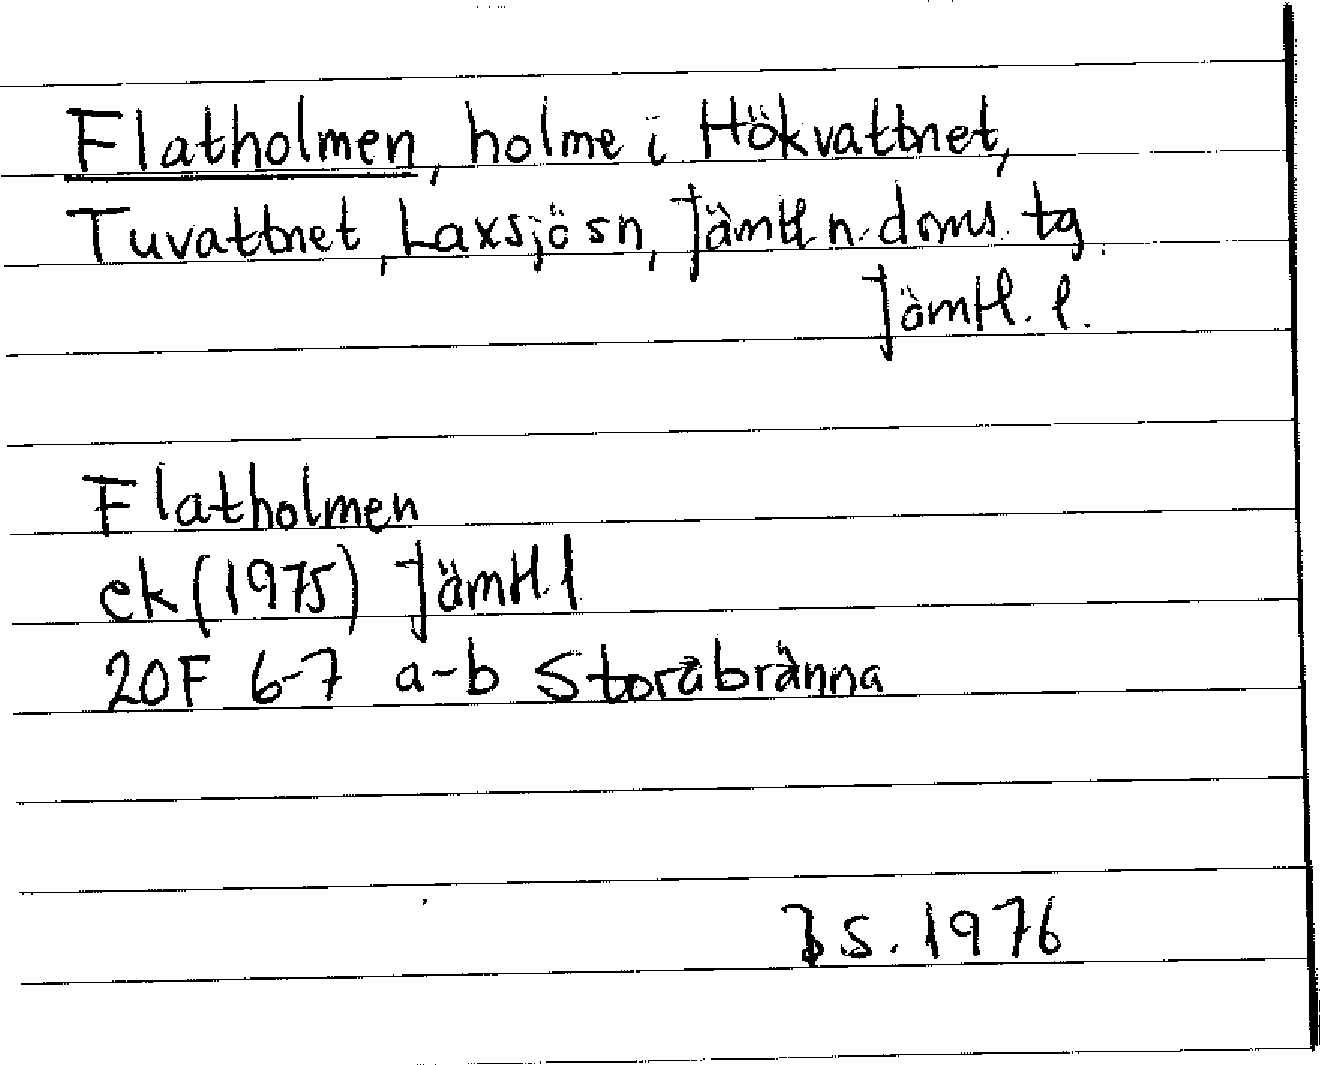 Flatholmen, holme i Hökvattnet,
Tuvattnet, Laxsjö sn, Jämtl. n. doms. tg.
Jämtl. l.
Flatholmen
ek (1975) Jämtl. l
20F 6-7 a-b Storåbränna
S. 1976